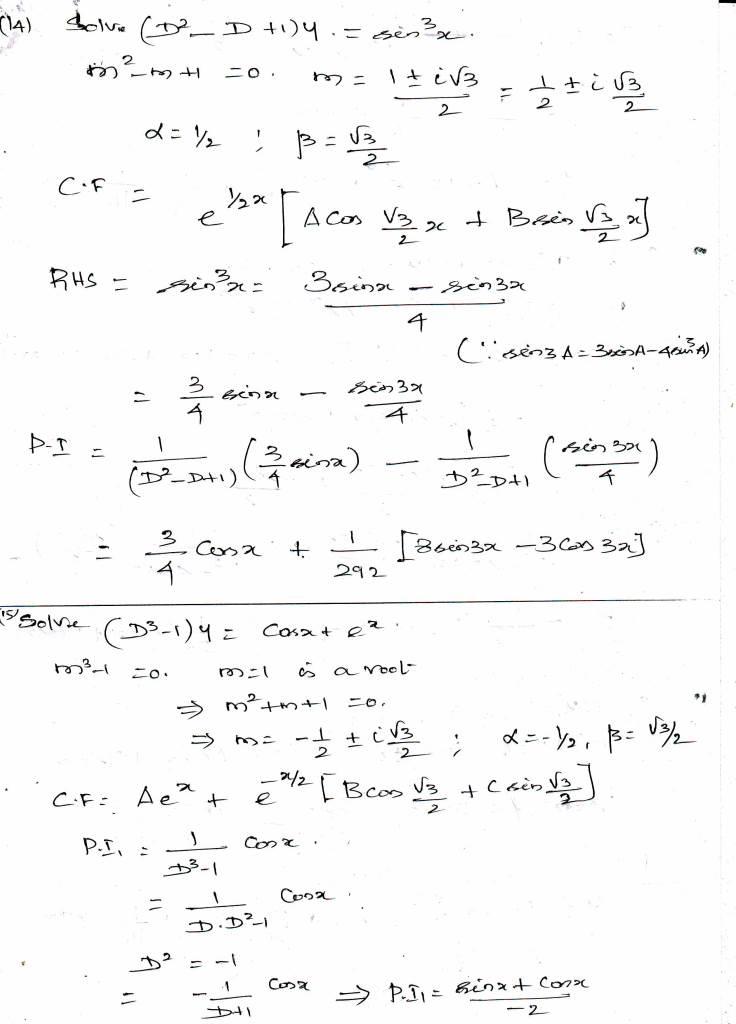 (14) Solve (D² - D + 1) y = sin³x.
m² - m + 1 = 0. m = (1 ± i√3)/2 = 1/2 ± i √3/2
α = 1/2 ; β = √3/2
C.F = e^(1/2 x) [A cos √3/2 x + B sin √3/2 x]
RHS = sin³x = (3 sinx - sin3x)/4
(∵ sin3A = 3sinA - 4sin³A)
= 3/4 sinx - sin3x/4
P.I = 1/(D² - D + 1) (3/4 sinx) - 1/(D² - D + 1) (sin 3x/4)
= 3/4 cosx + 1/292 [8sin3x - 3cos 3x]
(15) Solve (D³ - 1) y = cosx + eˣ.
m³ - 1 = 0. m = 1 is a root
⇒ m² + m + 1 = 0.
⇒ m = -1/2 ± i √3/2 ; α = -1/2, β = √3/2
C.F = Aeˣ + e^(-x/2) [B cos √3/2 + C sin √3/2]
P.I₁ = 1/(D³ - 1) cosx.
= 1/(D.D² - 1) cosx.
D² = -1
= -1/(D + 1) cosx ⇒ P.I₁ = (sinx + cosx)/-2